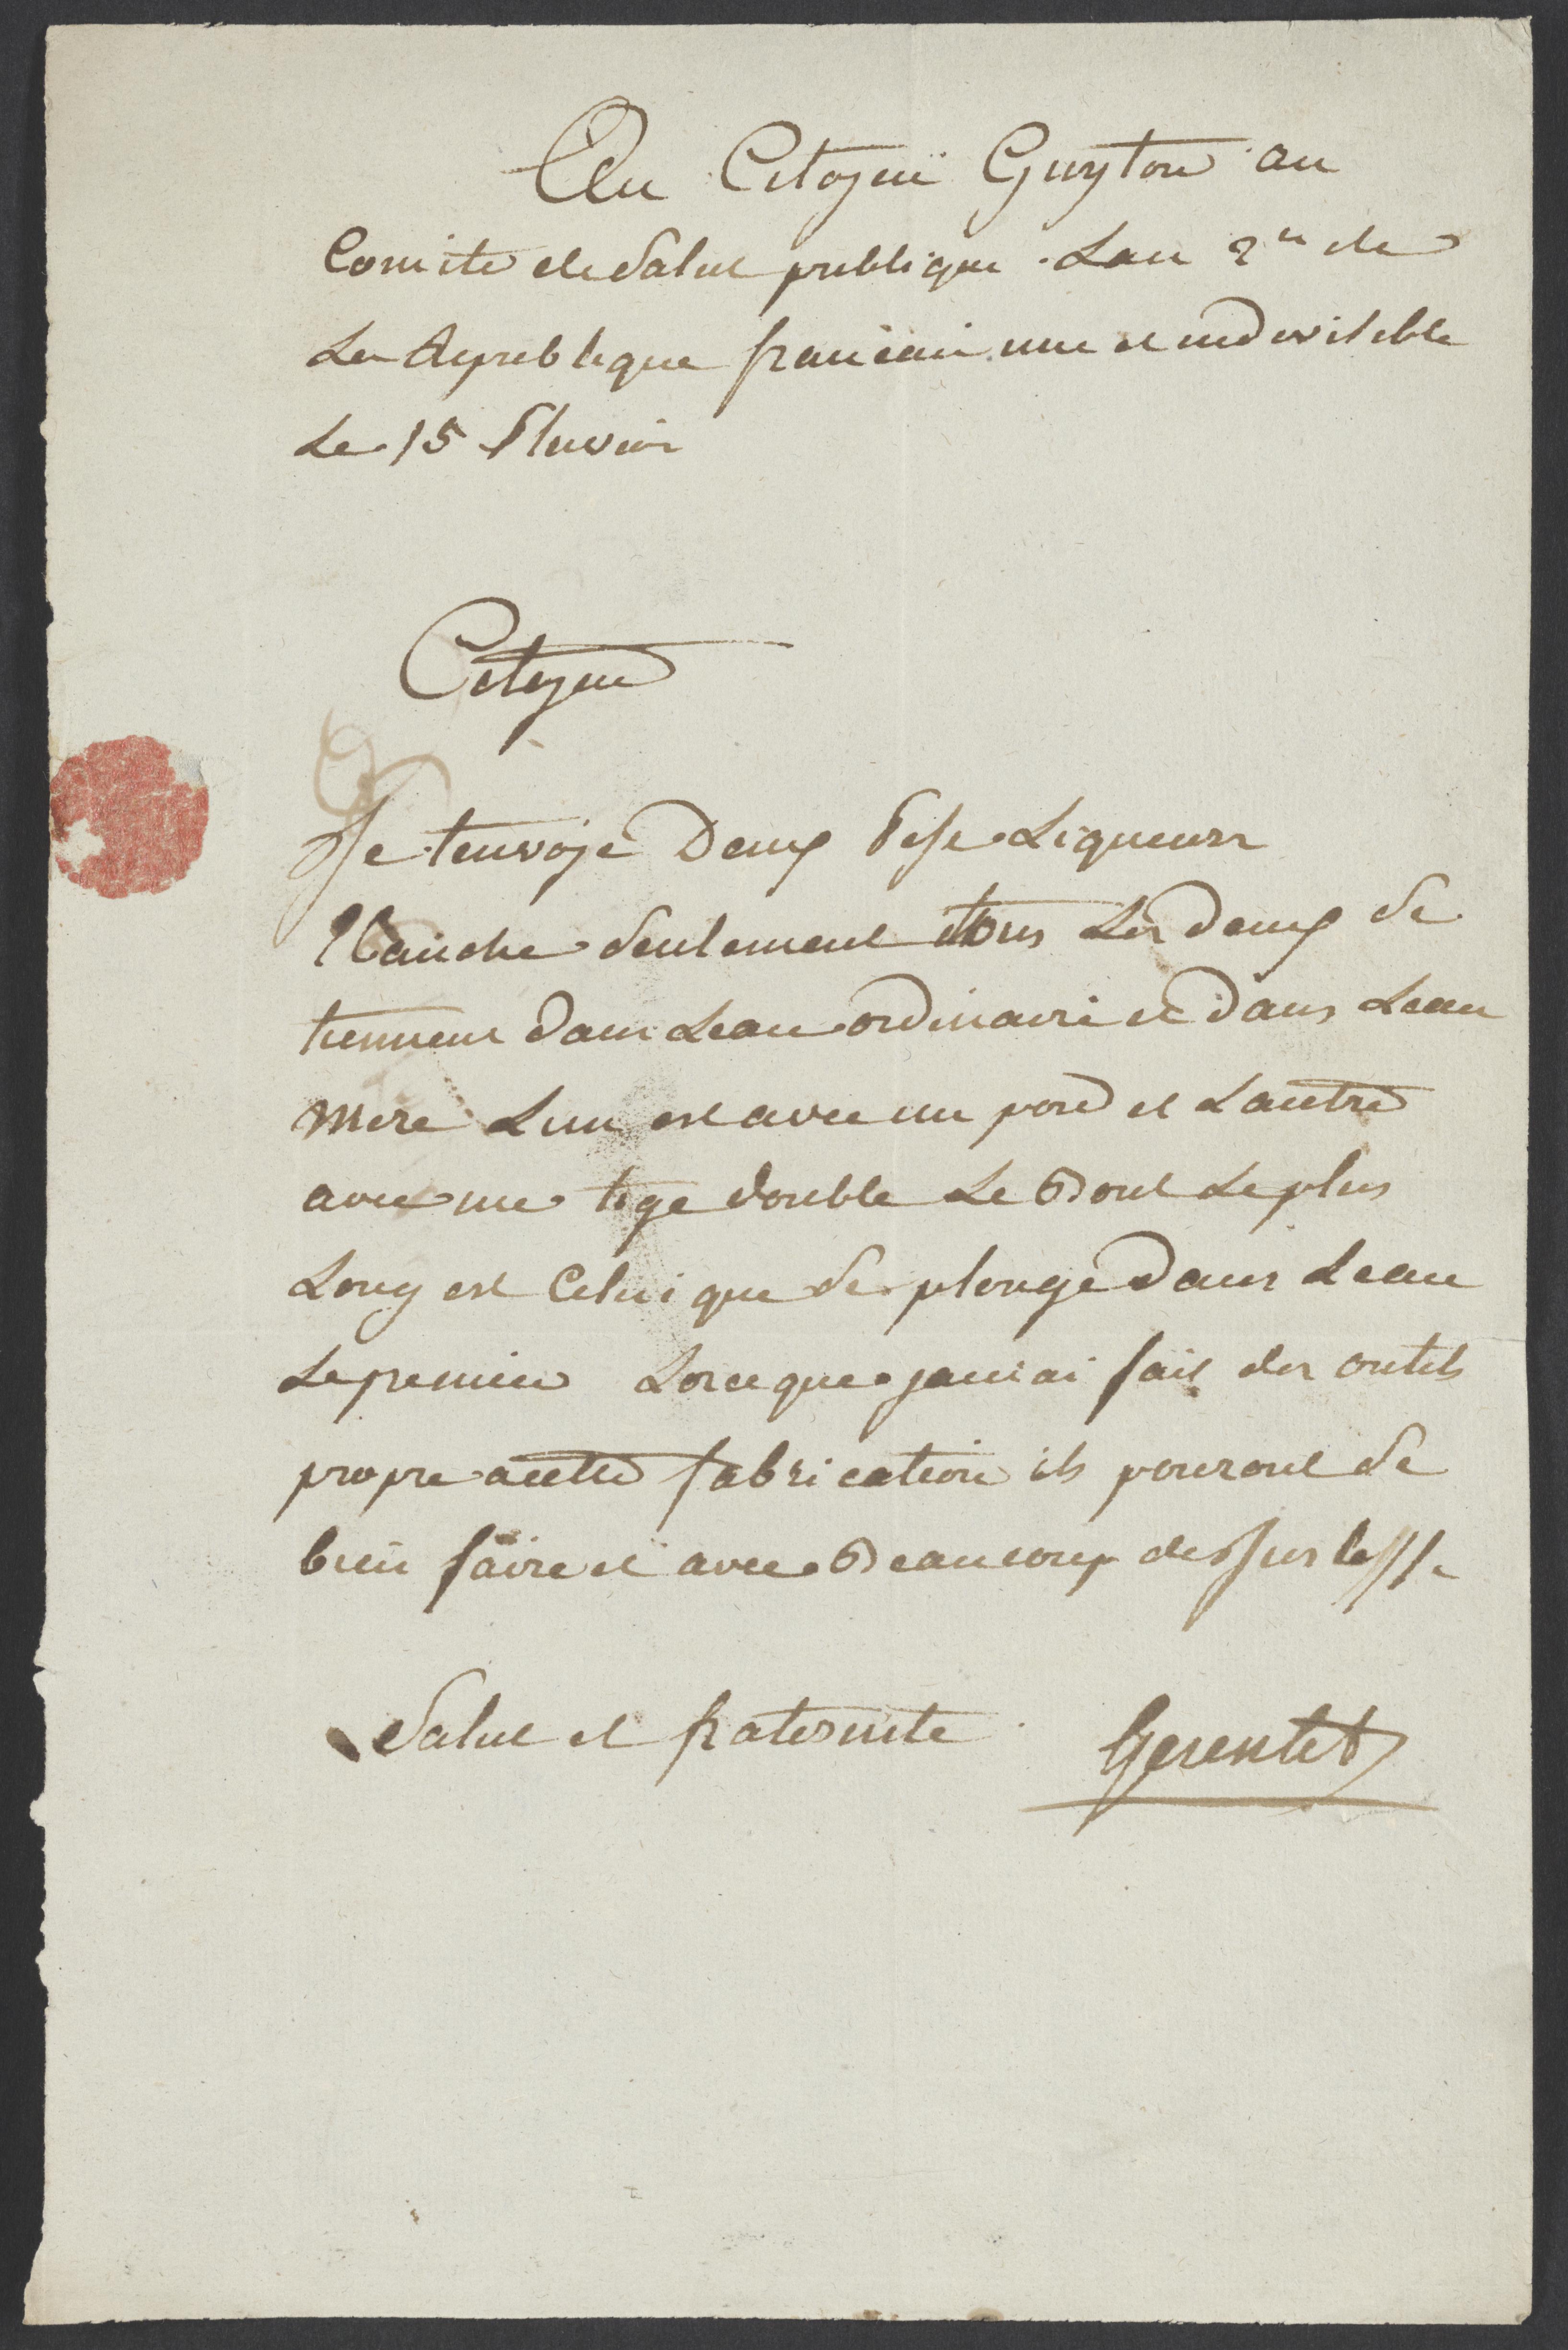 Au Citoyen Guyton au
Comite de Salut publique . Lan 2e de
La Republique francais une et indevisible
Le 15 Pluvios
Citoyen
Je tenvoje Deux Pese Liqueurs
seulement tous Les deux se
tiennent dans Leau ordinaire et dans Leau
mere Lun est avec un poid et Lautre
avec une tige double Le Bout Le plus
Long est Celui que se plonge Dans Leau
Le premier Lorceque jaurai fait des outils
propre acette fabrication ils pouront se
bien faire et avec Beaucoup de justesse
Salut et fraternite . Gerentet